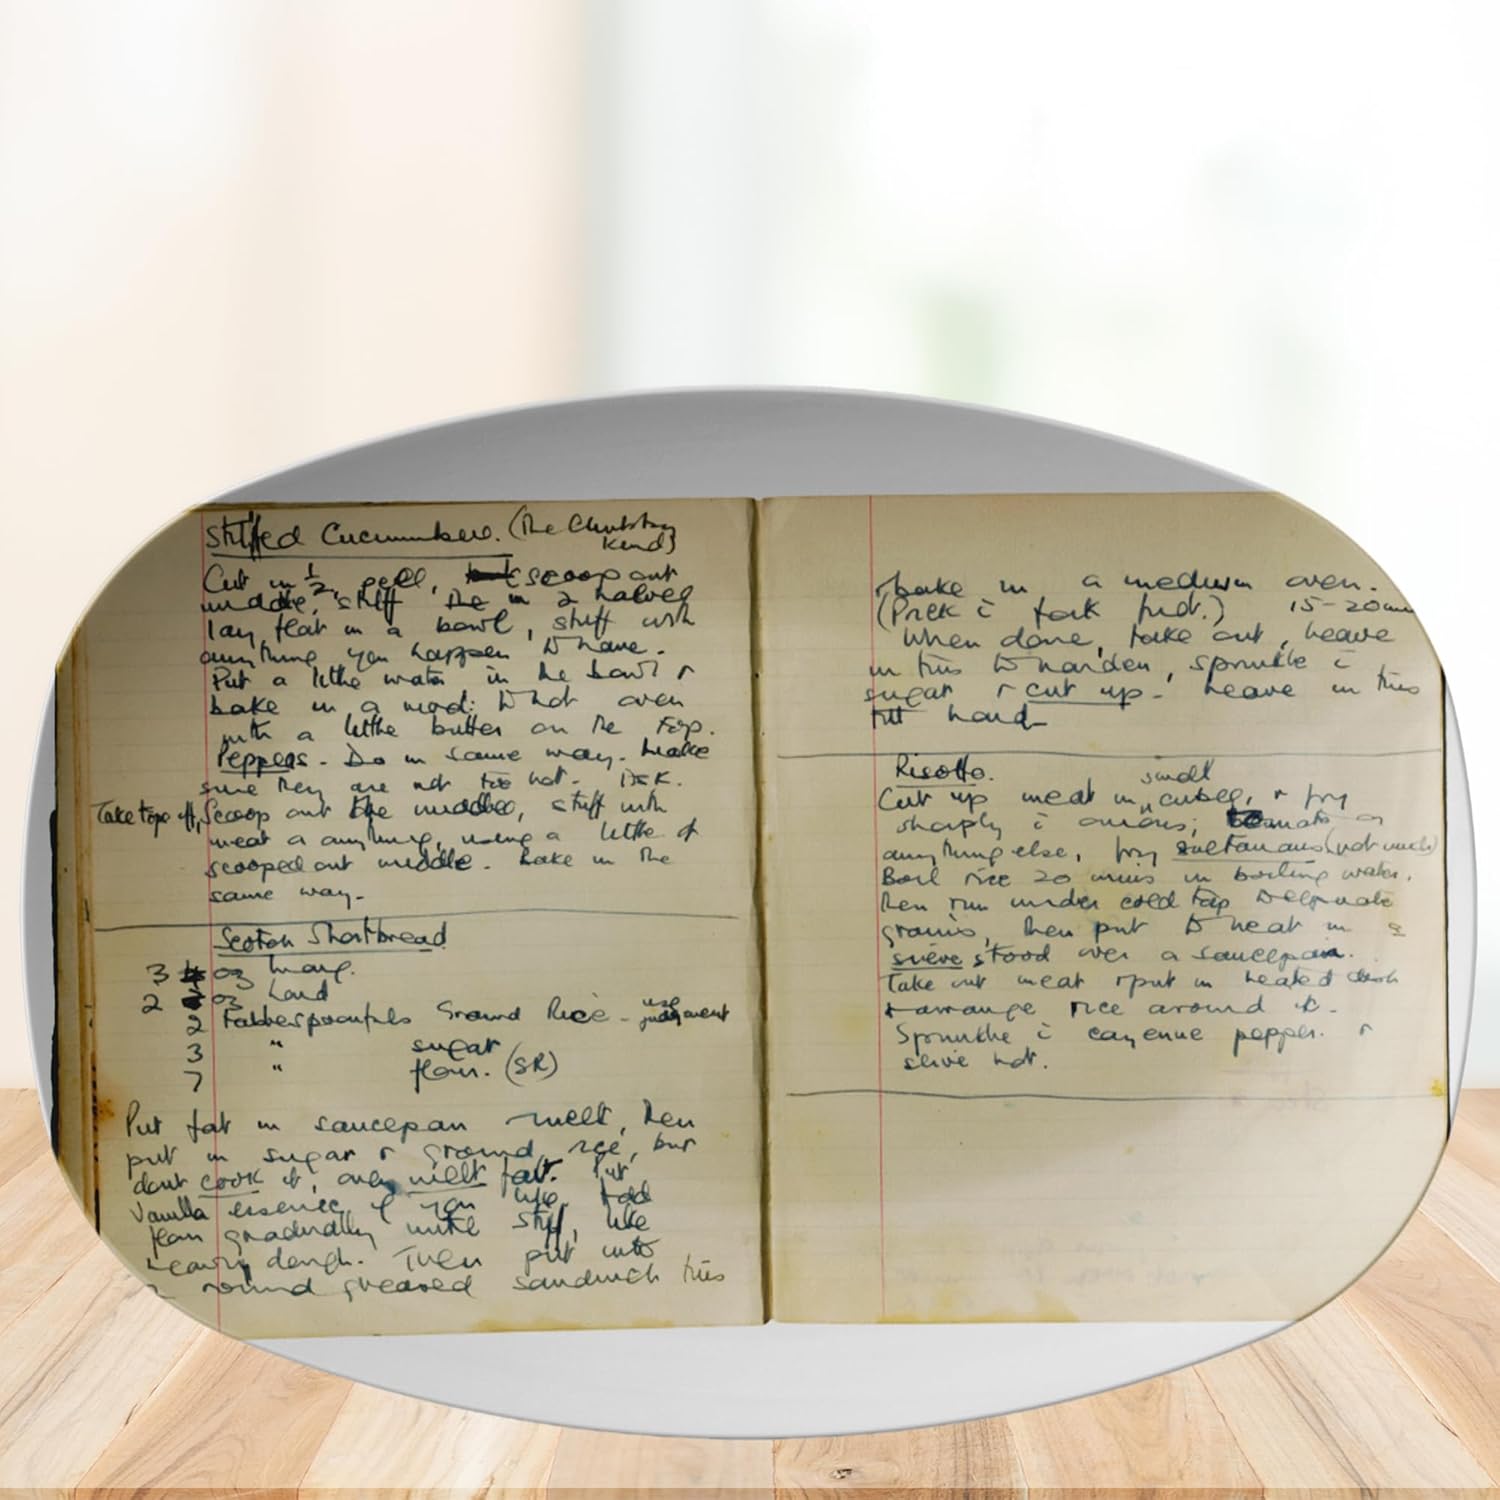 Stuffed Cucumbers. (The
Kind)
Cut in ½, peel, scoop out
middle, stuff the in 2 halves
lay flat in a bowl, stuff with
anything you happen to have.
Put a little water in the bowl &
bake in a mod: to hot oven
with a little butter on the top.
Peppers - Do in same way. Make
sure they are not too hot.
Take tops off, Scoop out the middles, stuff with
meat or anything, using a little of
scooped out middle. Bake in the
same way.
Scotch Shortbread
3 oz Marg.
2 oz Lard
2 Tablespoonfuls Ground Rice - use judgment
3 " sugar
7 " flour. (SR)
Put fat in saucepan melt, then
put in sugar & ground rice, but
dont cook it, only melt fat. Put
Vanilla essence if you like. Add
flour gradually until stiff, like
heavy dough. Then put into
round greased sandwich tins
& bake in a medium oven.
(Prick c̄ fork first.) 15-20 min
When done, take out, leave
in tins to harden, sprinkle c̄
sugar & cut up - leave in tins
till hard
Risotto.
Cut up meat in small cubes, & fry
sharply c̄ onions; tomato or
anything else, fry sultanas (not much)
Boil rice 20 mins in boiling water,
then run under cold tap to separate
grains, then put to heat in a
sieve stood over a saucepan.
Take out meat & put in heated dish
& arrange rice around it.
Sprinkle c̄ cayenne pepper. &
serve hot.